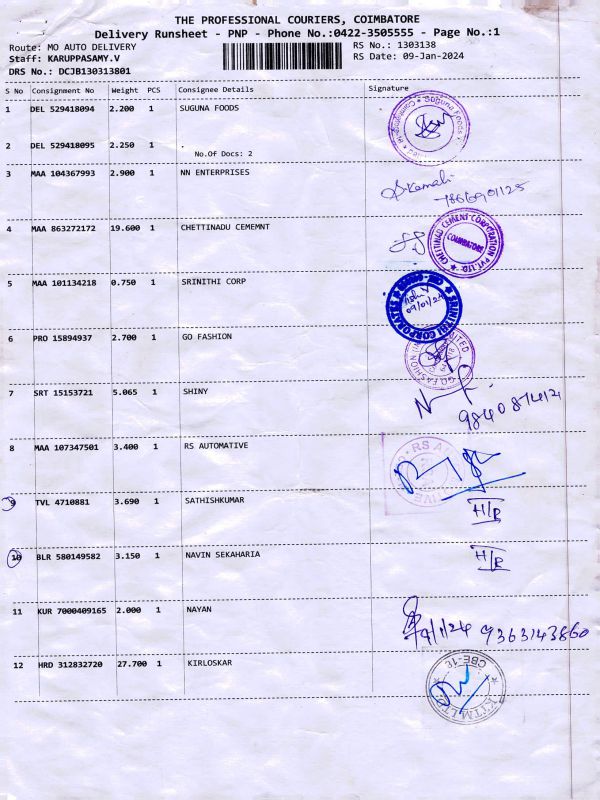 THE PROFESSIONAL COURIERS, COIMBATORE
Delivery Runsheet - PNP - Phone No.:0422-3505555 - Page No.:1
Route: MO AUTO DELIVERY
RS No.: 1303138
Staff: KARUPPASAMY.V
RS Date: 09-Jan-2024
DRS No.: DCJB130313801
S No Consignment No Weight PCS Consignee Details Signature
1 DEL 529418094 2.200 1 SUGUNA FOODS
Suguna Foods
2 DEL 529418095 2.250 1 .
No.Of Docs: 2
3 MAA 104367993 2.900 1 NN ENTERPRISES
4 MAA 863272172 19.600 1 CHETTINADU CEMEMNT
CHETTINAD CEMENT CORPORATION PVT. LTD.
COIMBATORE
5 MAA 101134218 0.750 1 SRINITHI CORP
SRINITHI CORPORATES
09/01/24
6 PRO 15894937 2.700 1 GO FASHION
GO FASHION
7 SRT 15153721 5.065 1 SHINY
8 MAA 107347501 3.400 1 RS AUTOMATIVE
9 TVL 4710881 3.690 1 SATHISHKUMAR
H/R
10 BLR 580149582 3.150 1 NAVIN SEKAHARIA
H/R
11 KUR 7000409165 2.000 1 NAYAN
9/1/24 9363143860
12 HRD 312832720 27.700 1 KIRLOSKAR
CBE-18